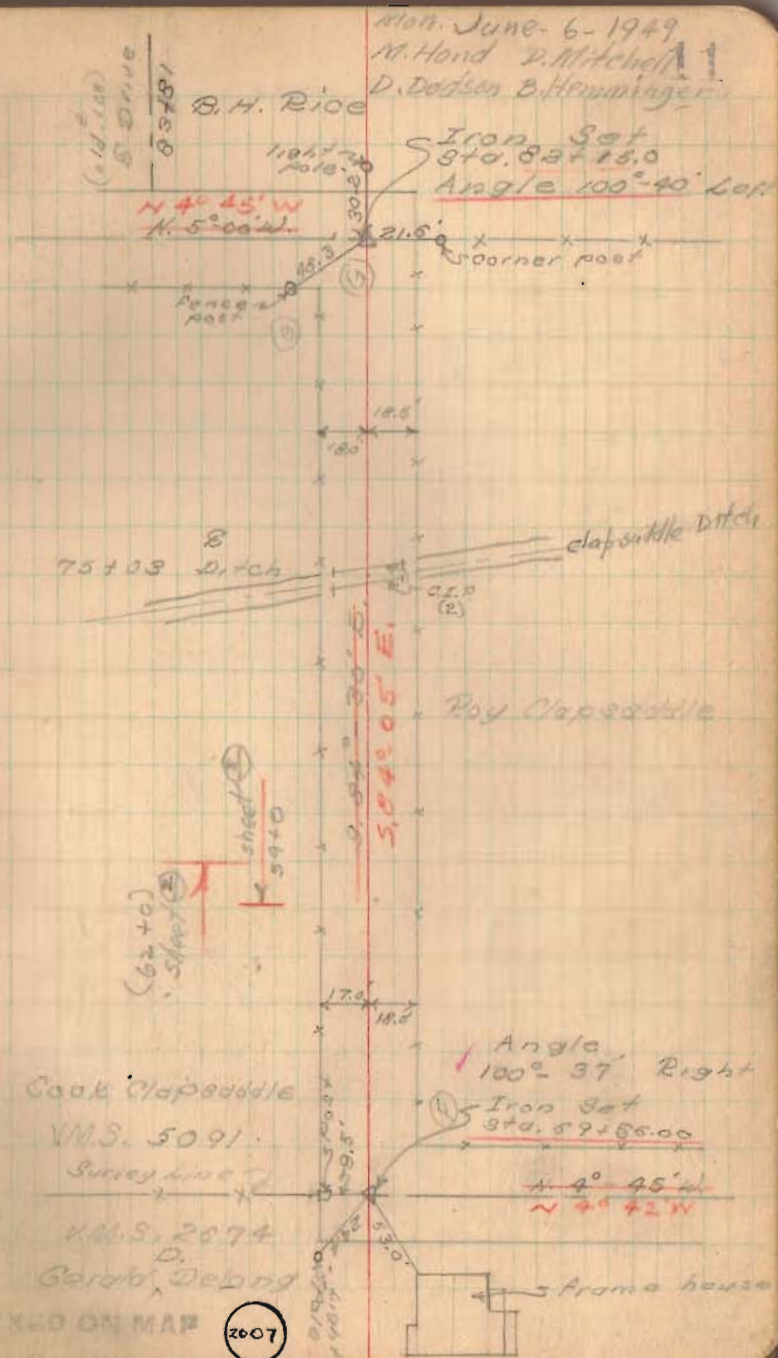 Mon. June-6-1949
M. Hond D. Mitchell
D. Dodson B. Hemminger
11
Drive
83+81
B.H. Rice
light pole
30.2
Iron Set
Sta. 82+15.0
Angle 100°-40' Left
N 4° 45' W
N. 5°-00' W.
21.5'
corner post
48.3'
fence post
18.5'
18.0'
75+03 Ditch
Clapsaddle Ditch
C.I.P.
(2)
S. 84°-30' E.
S. 84°-05' E.
Roy Clapsaddle
sheet
59+0
(62+0)
sheet 2
17.0'
18.0'
Angle
100°-37' Right
Iron Set
Sta. 59+56.00
Cook Clapsaddle
V.M.S. 5091
Survey Line
N. 4°-45' W
N 4° 42' W
V.M.S. 2674
D.
Gerald Delong
53.0'
frame house
ON MAP
2007